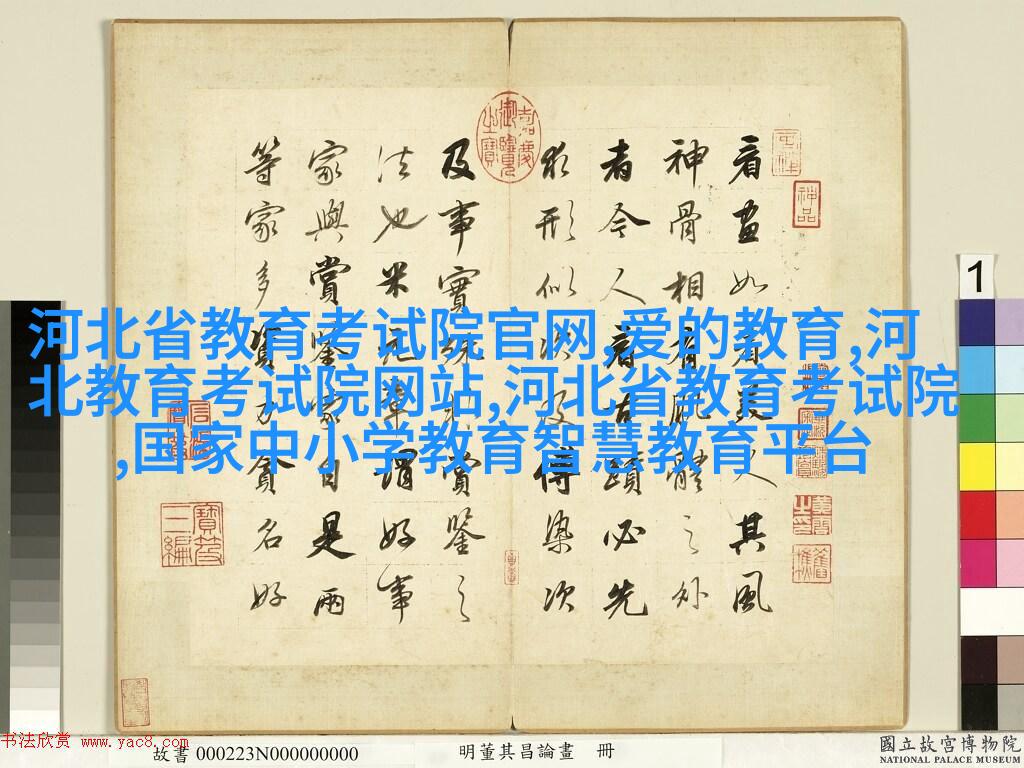 看畫如看美人其風
神骨相有肌體之外
者今人看古蹟必先
求形似次及傅染次
及事實殊非賞鑒之
法也米元章謂好事
家與賞鑒家自是兩
等家多資力貪名好
神品
嘉慶御覽之寶
寶笈三編
河北省教育考试院官网,爱的教育,河
北教育考试院网站,河北省教育考试院
,国家中小学教育智慧教育平台
1
书法欣赏 www.yac8.com
故書 000223N000000000
明董其昌論畫 冊
國立故宮博物院
NATIONAL PALACE MUSEUM